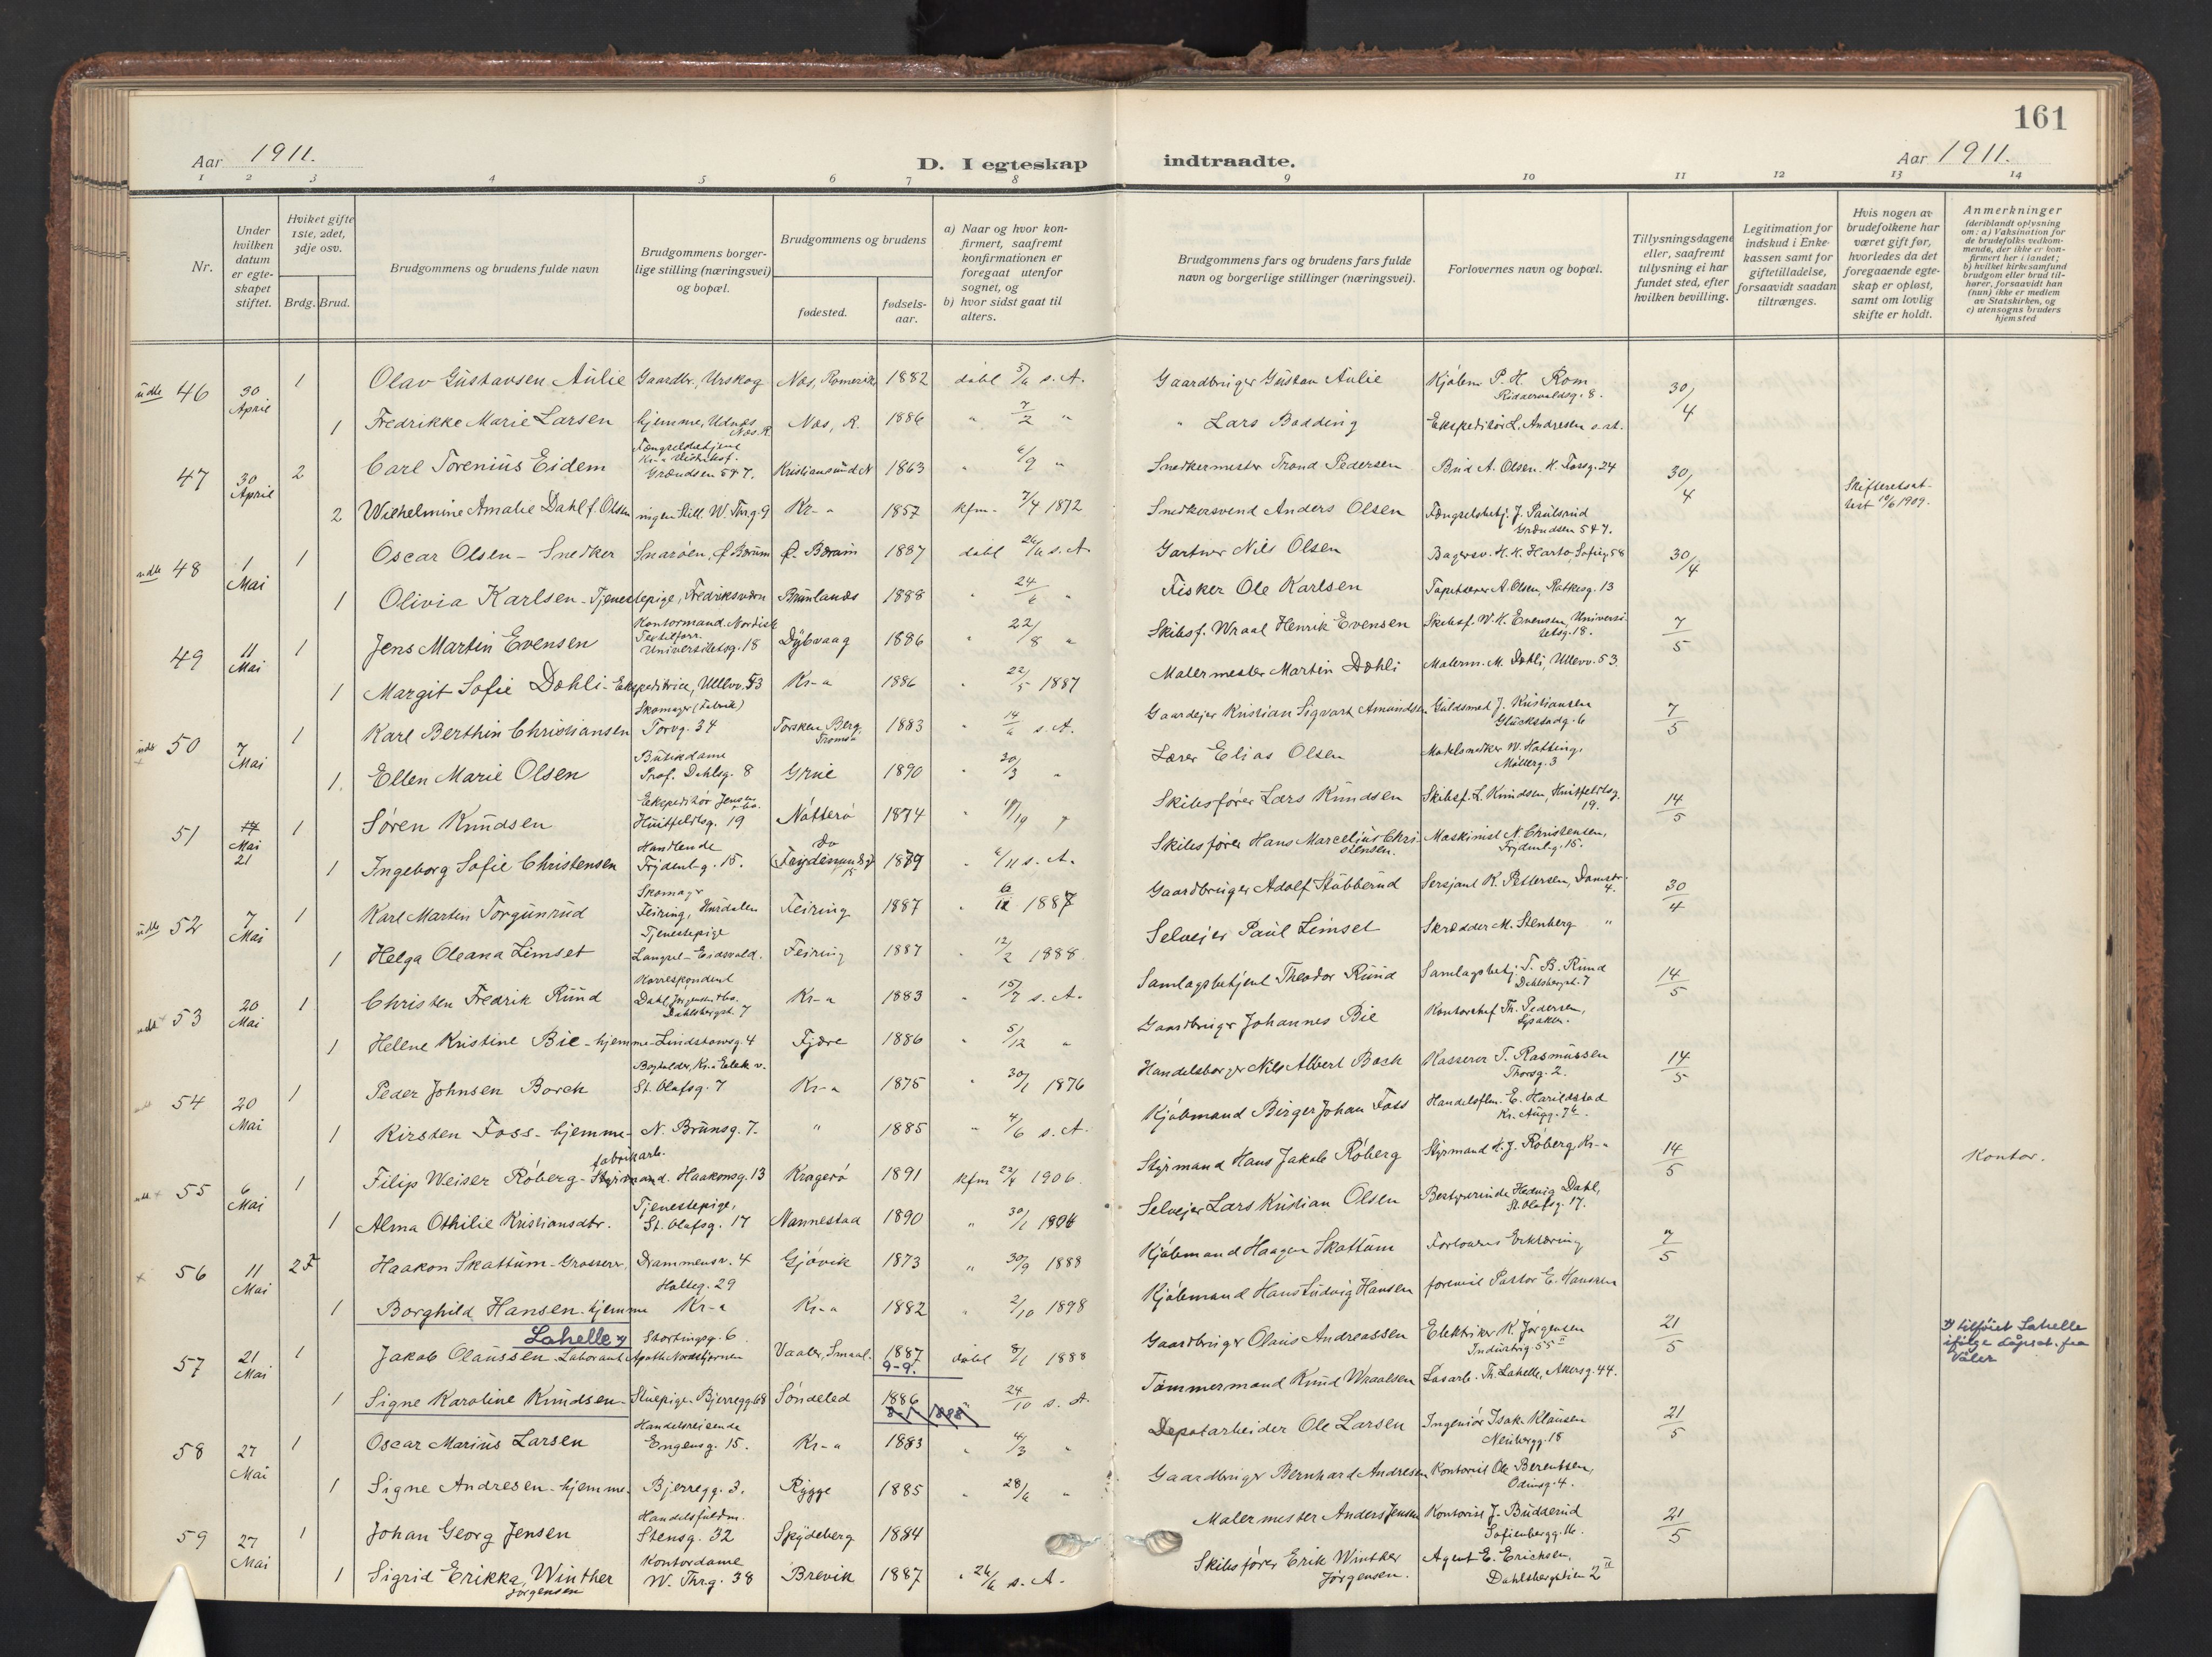 161
Aar 1911.
D. I egteskap indtraadte.
Aar 1911.
1 2 3 4 5 6 7 8 9 10 11 12 13 14
Nr.
Under hvilken datum er egteskapet stiftet.
Hviket gifte 1ste, 2det, 3dje osv.
Brdg. Brud.
Brudgommens og brudens fulde navn
Brudgommens borgerlige stilling (næringsvei) og bopæl.
Brudgommens og brudens
fødested.
fødselsaar.
a) Naar og hvor konfirmert, saafremt konfirmationen er foregaat utenfor sognet, og
b) hvor sidst gaat til alters.
Brudgommens fars og brudens fars fulde navn og borgerlige stillinger (næringsvei).
Forlovernes navn og bopæl.
Tillysningsdagene eller, saafremt tillysning ei har fundet sted, efter hvilken bevilling.
Legitimation for indskud i Enkekassen samt for giftetilladelse, forsaavidt saadan tiltrænges.
Hvis nogen av brudefolkene har været gift før, hvorledes da det foregaaende egteskap er opløst, samt om lovlig skifte er holdt.
Anmerkninger
(deriblandt oplysning om: a) Vaksination for de brudefolks vedkommende, der ikke er konfirmert her i landet;
b) hvilket kirkesamfund brudgom eller brud tilhører, forsaavidt han (hun) ikke er medlem av Statskirken, og
c) utensogns bruders hjemsted
udb 46 30 April 1 Olav Gustavsen Aulie Gaardbr., Urskog Nes, Romerik 1882 døbt s. A. Gaardbruger Gustav Aulie Kjøbm. P. H. Rom Riddervoldsg. 8. 30/4
1 Fredrikke Marie Larsen hjemme, Udnes Nes. R. Nes, R. 1886 " 7/2 " " Lars Bødding Ekspeditør L. Andresen s. st.
47 30 April 2 Carl Torenius Eidem Fængselsbetjent Grændsen 5&7. Kristiansund N 1863 " 6/9 " Snedkermester Trond Pedersen Bud A. Olsen. H. Fossg. 24 30/4 Skifteretsattest 10/6 1909.
2 Wilhelmine Amalie Dahl f. Olsen ingen still. W. Thrg. 9 Kr-a 1857 kfm. 7/4 1872 Snedkersvend Anders Olsen Fængselsbetj. J. Paulsrud Grændsen 5&7.
udb 48 1 Mai 1 Oscar Olsen - Snedker Snarøen, Ø. Bærum Ø. Bærum 1887 døbt 26/6 s. A. Gartner Nils Olsen Bagersv. H. K. Harto, Sofieg. 58 30/4
1 Olivia Karlsen - Tjenestepige, Fredriksværn Brunlanes 1888 " 24/6 " Fisker Ole Karlsen Tapetserer A. Olsen, Ratkesg. 13
49 11 Mai 1 Jens Martin Evensen Kontormand Nordisk Textilforr. Universitetsg. 18 Dybvaag 1886 " 22/8 " Skibsf. Wraal Henrik Evensen Skibsf. W. H. Evensen, Universitetsg. 18. 7/5
1 Margit Sofie Dæhli - Ekspeditrice, Ullevv. 53 Kr-a 1886 " 22/5 1887 Malermester Martin Dæhli Malerm. M. Dæhli, Ullevv. 53.
udb 50 7 Mai 1 Karl Berthin Christiansen Skomager (Fabrik) Torvg. 34 Torsken, Berg, Tromsø 1883 " 14/6 s. A. Gaardejer Kristian Sigvart Amundsen Guldsmed J. Kristiansen Glückstadg. 6 7/5
1. Ellen Marie Olsen Butikdame Prof. Dahlsg. 8 Grue 1890 " 20/3 " Lærer Elias Olsen Møbelsnedker W. Hatting, Møllerg. 3
51 14 Mai 21 1 Søren Knudsen Ekspeditør Jensen & Co. Huitfeldtsg. 19 Nøtterø 1874 Skibsfører Lars Knudsen Skibsf. L. Knudsen, Huitfeldtsg. 19. 14/5
1 Ingeborg Sofie Christensen Handlende Frydenbg. 15. do (Frydenlundsg. 15 1879 " 6/11 s. A. Skibsfører Hans Marcelius Christensen. Maskinist N. Christensen, Frydenlg. 15.
udb 52 7 Mai 1 Karl Martin Torgunrud Skomager Feiring, Hurdalen Feiring 1887 " 1887 Gaardbruger Adolf Stubberud Sersjant K. Pettersen, Damstr. 4. 30/4
1 Helga Oleana Limset Tjenestepige Langset - Eidsvold. Feiring 1887 " 12/2 1888 Selveier Paul Limset Skrædder M. Stenberg "
udb 53 20 Mai 1 Christen Fredrik Rund Korrespondent Dahl, Jørgensen & Co. Dahlsbergst. 7 Kr-a 1883 " 15/7 s. A. Samlagsbetjent Theodor Rund Samlagsbetj. T. B. Rund Dahlsbergst. 7 14/5
1 Helene Kristine Bie - hjemme - Lindstowsg. 4 Fjære 1886 " 5/12 " Gaardbruger Johannes Bie Kontorchef Th. Pedersen, Lysaker.
54 20 Mai 1 Peder Johnsen Borch Bogholder, Kr.a Elek. v. St. Olafsg. 7 Kr-a 1875 " 30/1 1876 Handelsborger Nils Albert Bock Kasserer T. Rasmussen Thorsg. 2. 14/5
1 Kirsten Foss - hjemme - N. Brunsg. 7. " 1885 " 4/6 s. A. Kjøbmand Birger Johan Foss Handelsflm. E. Harildstad Kr. Augg. 7b.
55 6 Mai 1 Filip Weiser Røberg - Styrmand. fabrikarb. Haakonsg. 13 Kragerø 1891 kfm 22/4 1906. Styrmand Hans Jakob Røberg Styrmand H. J. Røberg, Kr-a 14/5 Kontor.
1 Alma Othilie Kristiansdtr. Tjenestepige, St. Olafsg. 17 Nannestad 1890 " 30/1 1906 Selveier Lars Kristian Olsen Bestyrerinde Hedvig Dahl, St. Olafsg. 17.
56 11 Mai 2 F Haakon Skattum - Grosserer, Drammensv. 4 Gjøvik 1873 " 30/9 1888 Kjøbmand Haagen Skattum Forlovers Erklæring 7/5
1 Borghild Hansen - hjemme Holteg. 29 Kr-a Kr-a 1882 " 2/10 1898 Kjøbmand Hans Ludvig Hansen forevist Pastor E. Hanssen
57 21 Mai 1 Jakob Olaussen Lahelle x) - Laborant Stortingsg. 6. Apoth. Nordstjernen Vaaler, Smaal. 1887 9-9. døbt 8/1 1888 Gaardbruger Olaus Andreassen Elektriker K. Jørgensen Industrig. 55 II 21/5 x) tilføiet Lahelle ifølge dåpsat. fra Våler
1 Signe Karoline Knudsen - Stuepige. Bjerregg. 68 Søndeled 1886 " 24/10 s. A. Tømmermand Knud Wraalsen Løsarb. Th. Lahelle, Akersg. 44.
58 27 Mai 1 Oscar Marius Larsen Handelsreisende Engensg. 15. Kr-a 1883 " 4/3 " Depotarbeider Ole Larsen Ingeniør Isak Klausen Neubergg. 18 21/5
1 Signe Andresen - hjemme - Bjerregg. 3. Rygge 1885 " 28/6 " Gaardbruger Bernhard Andresen Kontorist Ole Berentsen, Odinsg. 4.
59 27 Mai 1 Johan Georg Jensen Handelsfuldm. Stensg. 32 Spydeberg 1884 Malermester Anders Jensen Kontorist J. Budderud Sofienbergg. 16. 21/5
1 Sigrid Erikka Winther Jørgensen Kontordame W. Thrg. 38 Brevik 1887 " 26/6 s. A. Skibsfører Erik Winther Jørgensen. Agent E. Erichsen, Dahlsbergstien 2 II